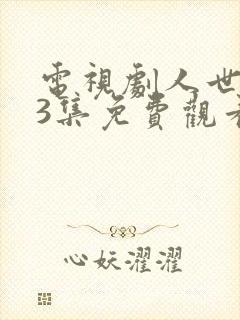 電視劇人世
3集免費觀看
心妖濯濯